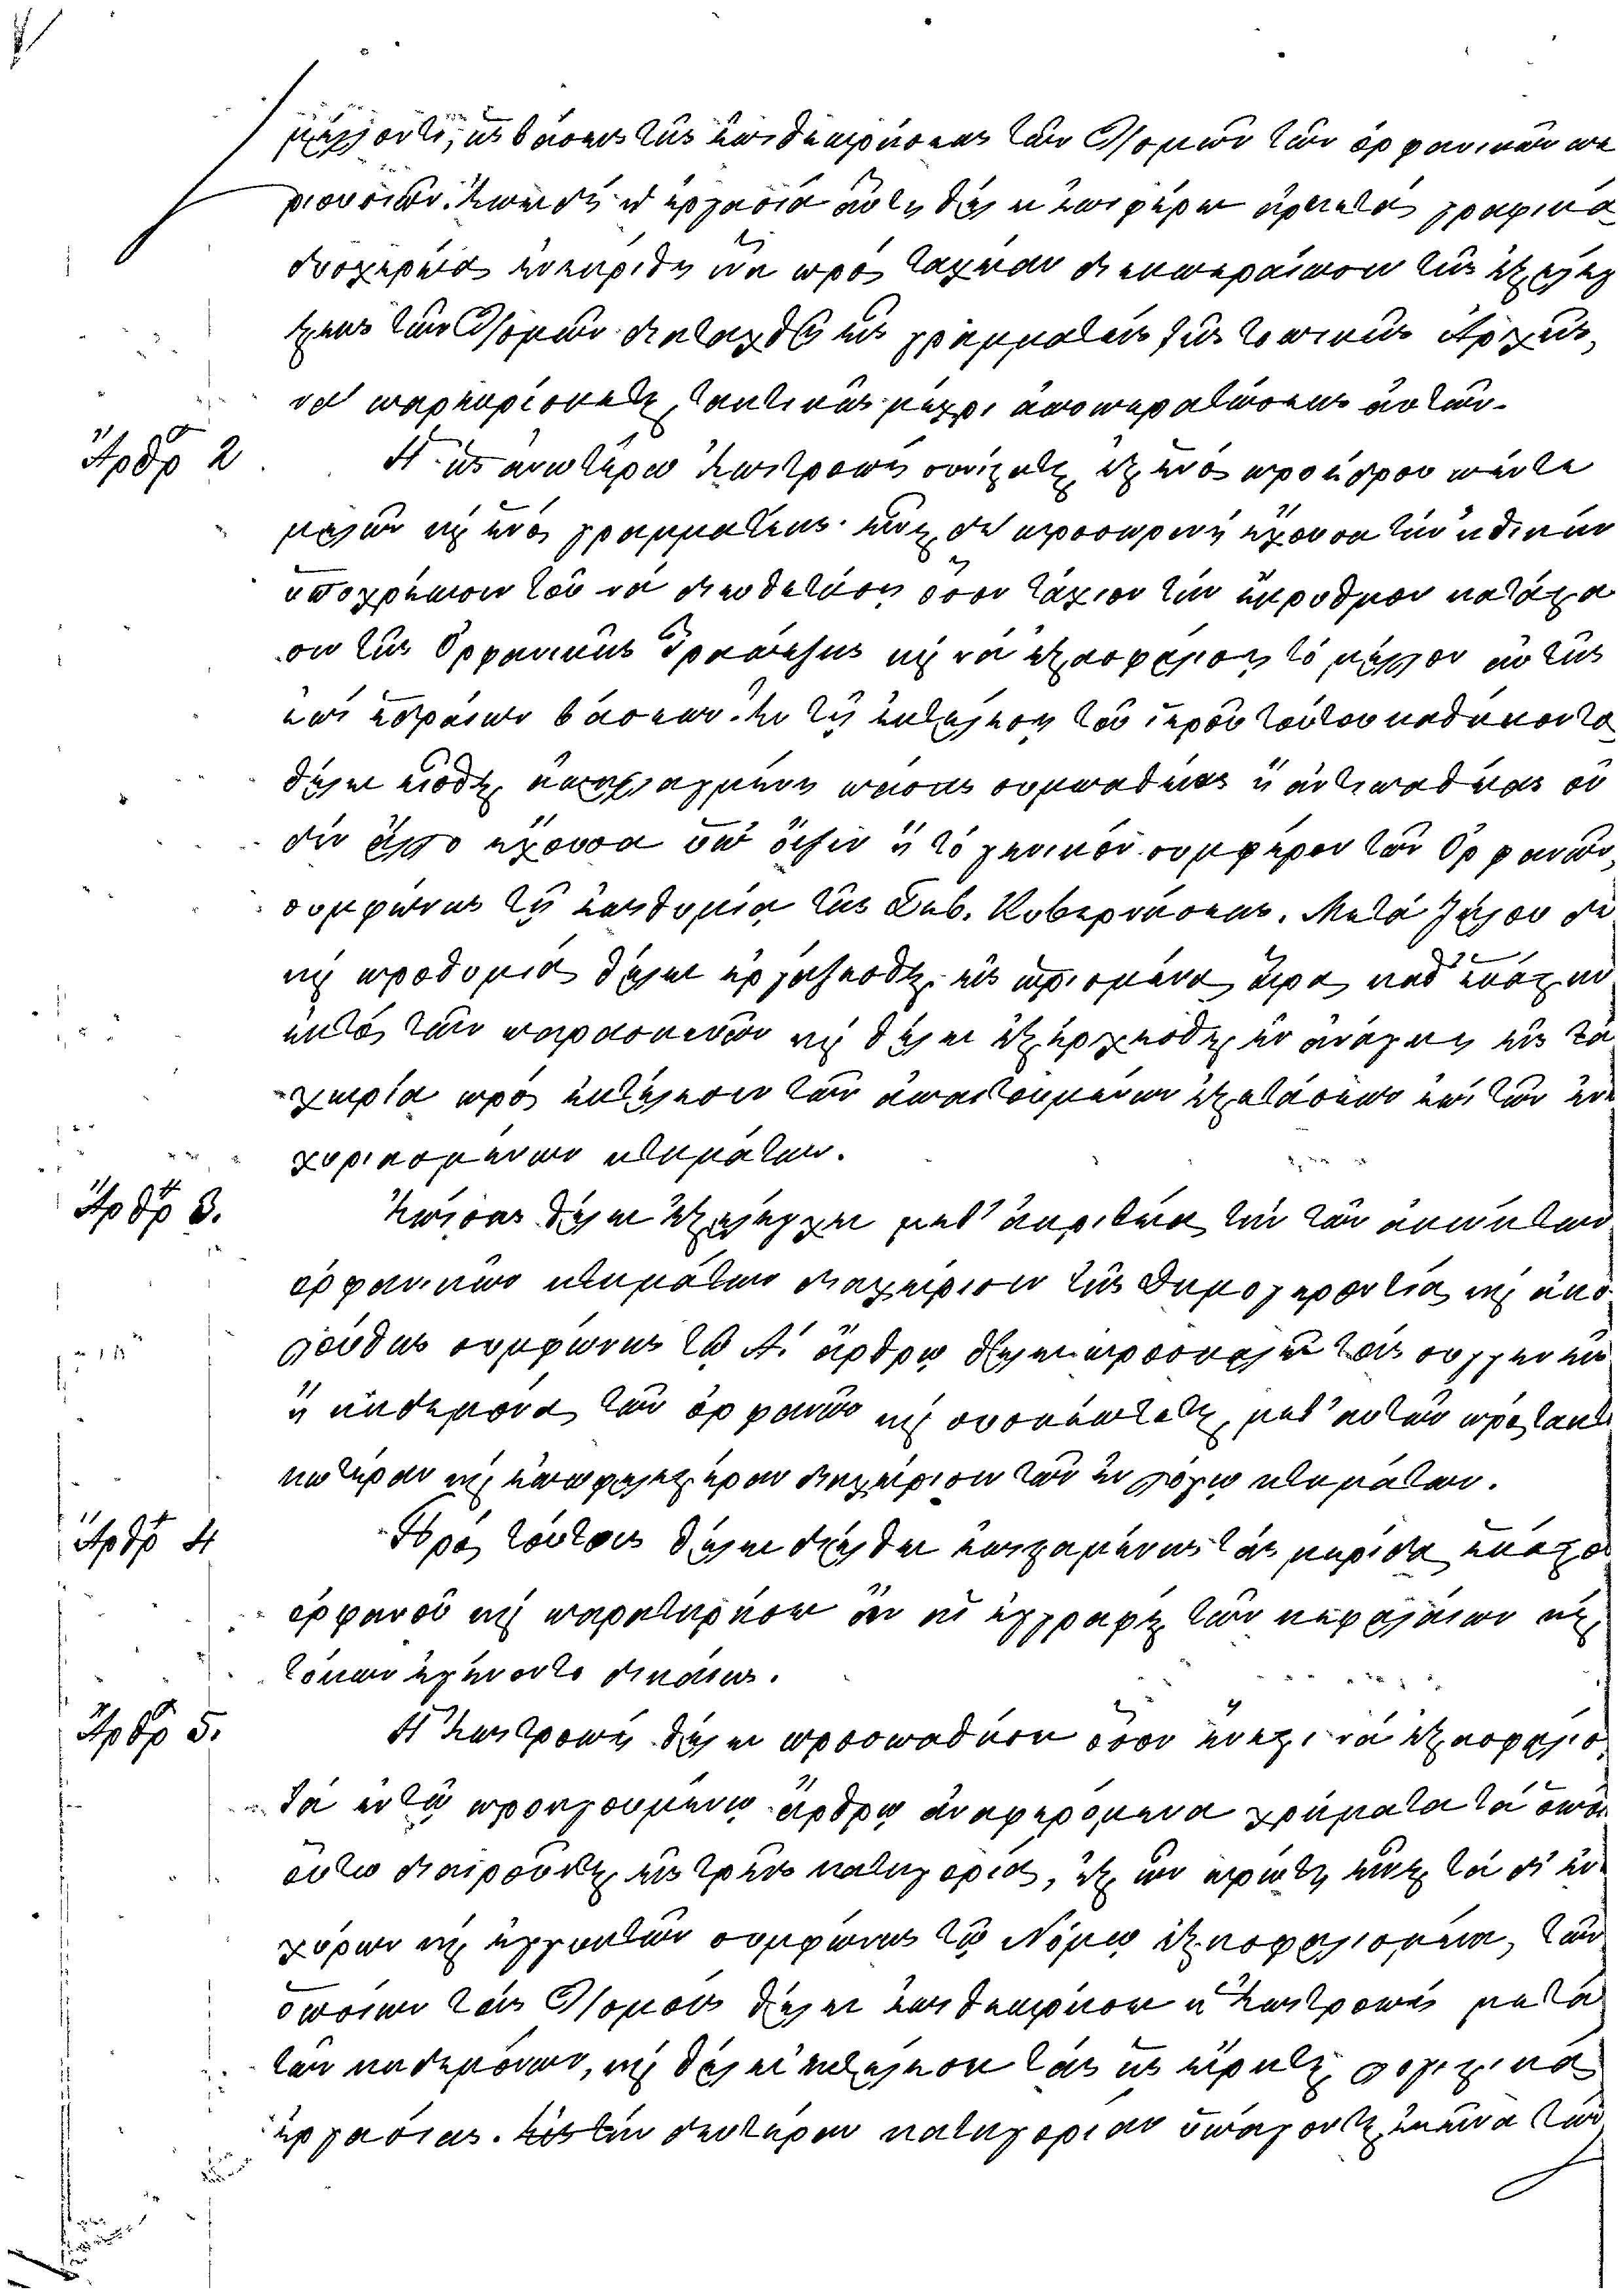 μέλλοντι, ὡς βάσεως τῆς ἐπιθεωρήσεως τῶν Ὁλομῶν τῶν ὀρφανικῶν πε
ριουσιῶν. Ἐπειδή ἡ ἐργασία αὕτη θέλει ἐπιφέρει ἀρκετάς γραφικάς
δυσχερείας ἐνεκρίθη ἵνα πρός ταχεῖαν διεκπεραίωσιν τῆς ἐξελέγ
ξεως τῶν Ὁλομῶν διαταχθῇ εἷς γραμματεύς τῆς τοπικῆς Ἀρχῆς,
νά παρευρίσκεται τακτικῶς μέχρι ἀποπερατώσεως αὐτῶν.
Ἄρθρ 2 Ἡ ὡς ἀνωτέρω Ἐπιτροπή συνίσταται ἐξ ἑνός προέδρου πέντε
μελῶν καί ἑνός γραμματέως· εἶναι δέ προσωρινή ἔχουσα τήν ἠθικήν
ὑποχρέωσιν τοῦ νά διευθετήσῃ ὅσον τάχιον τήν εὔρυθμον κατάστα
σιν τῆς Ὀρφανικῆς Τραπέζης καί νά ἐξασφαλίσῃ τό μέλλον αὐτῆς
ἐπί ἑδραίων βάσεων. Ἐν τῇ ἐκτελέσει τοῦ ἱεροῦ τούτου καθήκοντος
θέλει εἶσθαι ἀπηλλαγμένη πάσης συμπαθείας ἤ ἀντιπαθείας οὐ
δέν ἄλλο ἔχουσα ὑπ' ὄψιν ἤ τό γενικόν συμφέρον τῶν Ὀρφανῶν,
συμφώνως τῇ ἐπιθυμίᾳ τῆς Σεβ. Κυβερνήσεως. Μετά ζήλου δέ
καί προθυμίας θέλει ἐργάζεσθαι εἰς ὡρισμένας ὥρας καθ' ἑκάστην
ἐκτός τῶν παρασκευῶν καί θέλει ἐξέρχεσθαι ἐν ἀνάγκῃ εἰς τά
χωρία πρός ἐκτέλεσιν τῶν ἀπαιτουμένων ἐξετάσεων ἐπί τῶν ἐνε
χυριασμένων κτημάτων.
Ἄρθρ 3. Ἐπίσης θέλει ἐξελέγχει μετ' ἀκριβείας τήν τῶν ἀκινήτων
ὀρφανικῶν κτημάτων διαχείρισιν τῆς Δημογεροντίας καί ἀκο
λούθως συμφώνως τῷ Α. ἄρθρῳ θέλει προσκαλεῖ τούς συγγενεῖς
ἤ κηδεμόνας τῶν ὀρφανῶν καί συσκέπτεται μετ' αὐτῶν πρός τακτι
κωτέραν καί ἐπωφελεστέραν διαχείρισιν τῶν ἐν λόγῳ κτημάτων.
Ἄρθρ 4 Πρός τούτοις θέλει διέλθει ἐπισταμένως τάς μερίδας ἑκάστου
ὀρφανοῦ καί παρατηρήσει ἄν αἱ ἐγγραφαί τῶν κεφαλαίων καί
τόκων ἐγένοντο δικαίως.
Ἄρθρ 5. Ἡ Ἐπιτροπή θέλει προσπαθήσει ὅσον ἔνεστι νά ἐξασφαλίσῃ
τά ἐν τῷ προηγουμένῳ ἄρθρῳ ἀναφερόμενα χρήματα τά ὁποῖα
οὕτω διαιροῦνται εἰς τρεῖς κατηγορίας, ἐξ ὧν πρώτη εἶναι τά δι' ἐνε
χύρων καί ἐγγυητῶν συμφώνως τῷ Νόμῳ ἐξησφαλισμένα, τῶν
ὁποίων τούς Ὁλομούς θέλει ἐπιθεωρήσει ἡ Ἐπιτροπή μετά
τῶν κηδεμόνων, καί θέλει ἐκτελέσει τάς ὡς εἴρηται λογιστικάς
ἐργασίας. Εἰς τήν δευτέραν κατηγορίαν ὑπάγονται ἐκεῖνα τῶν